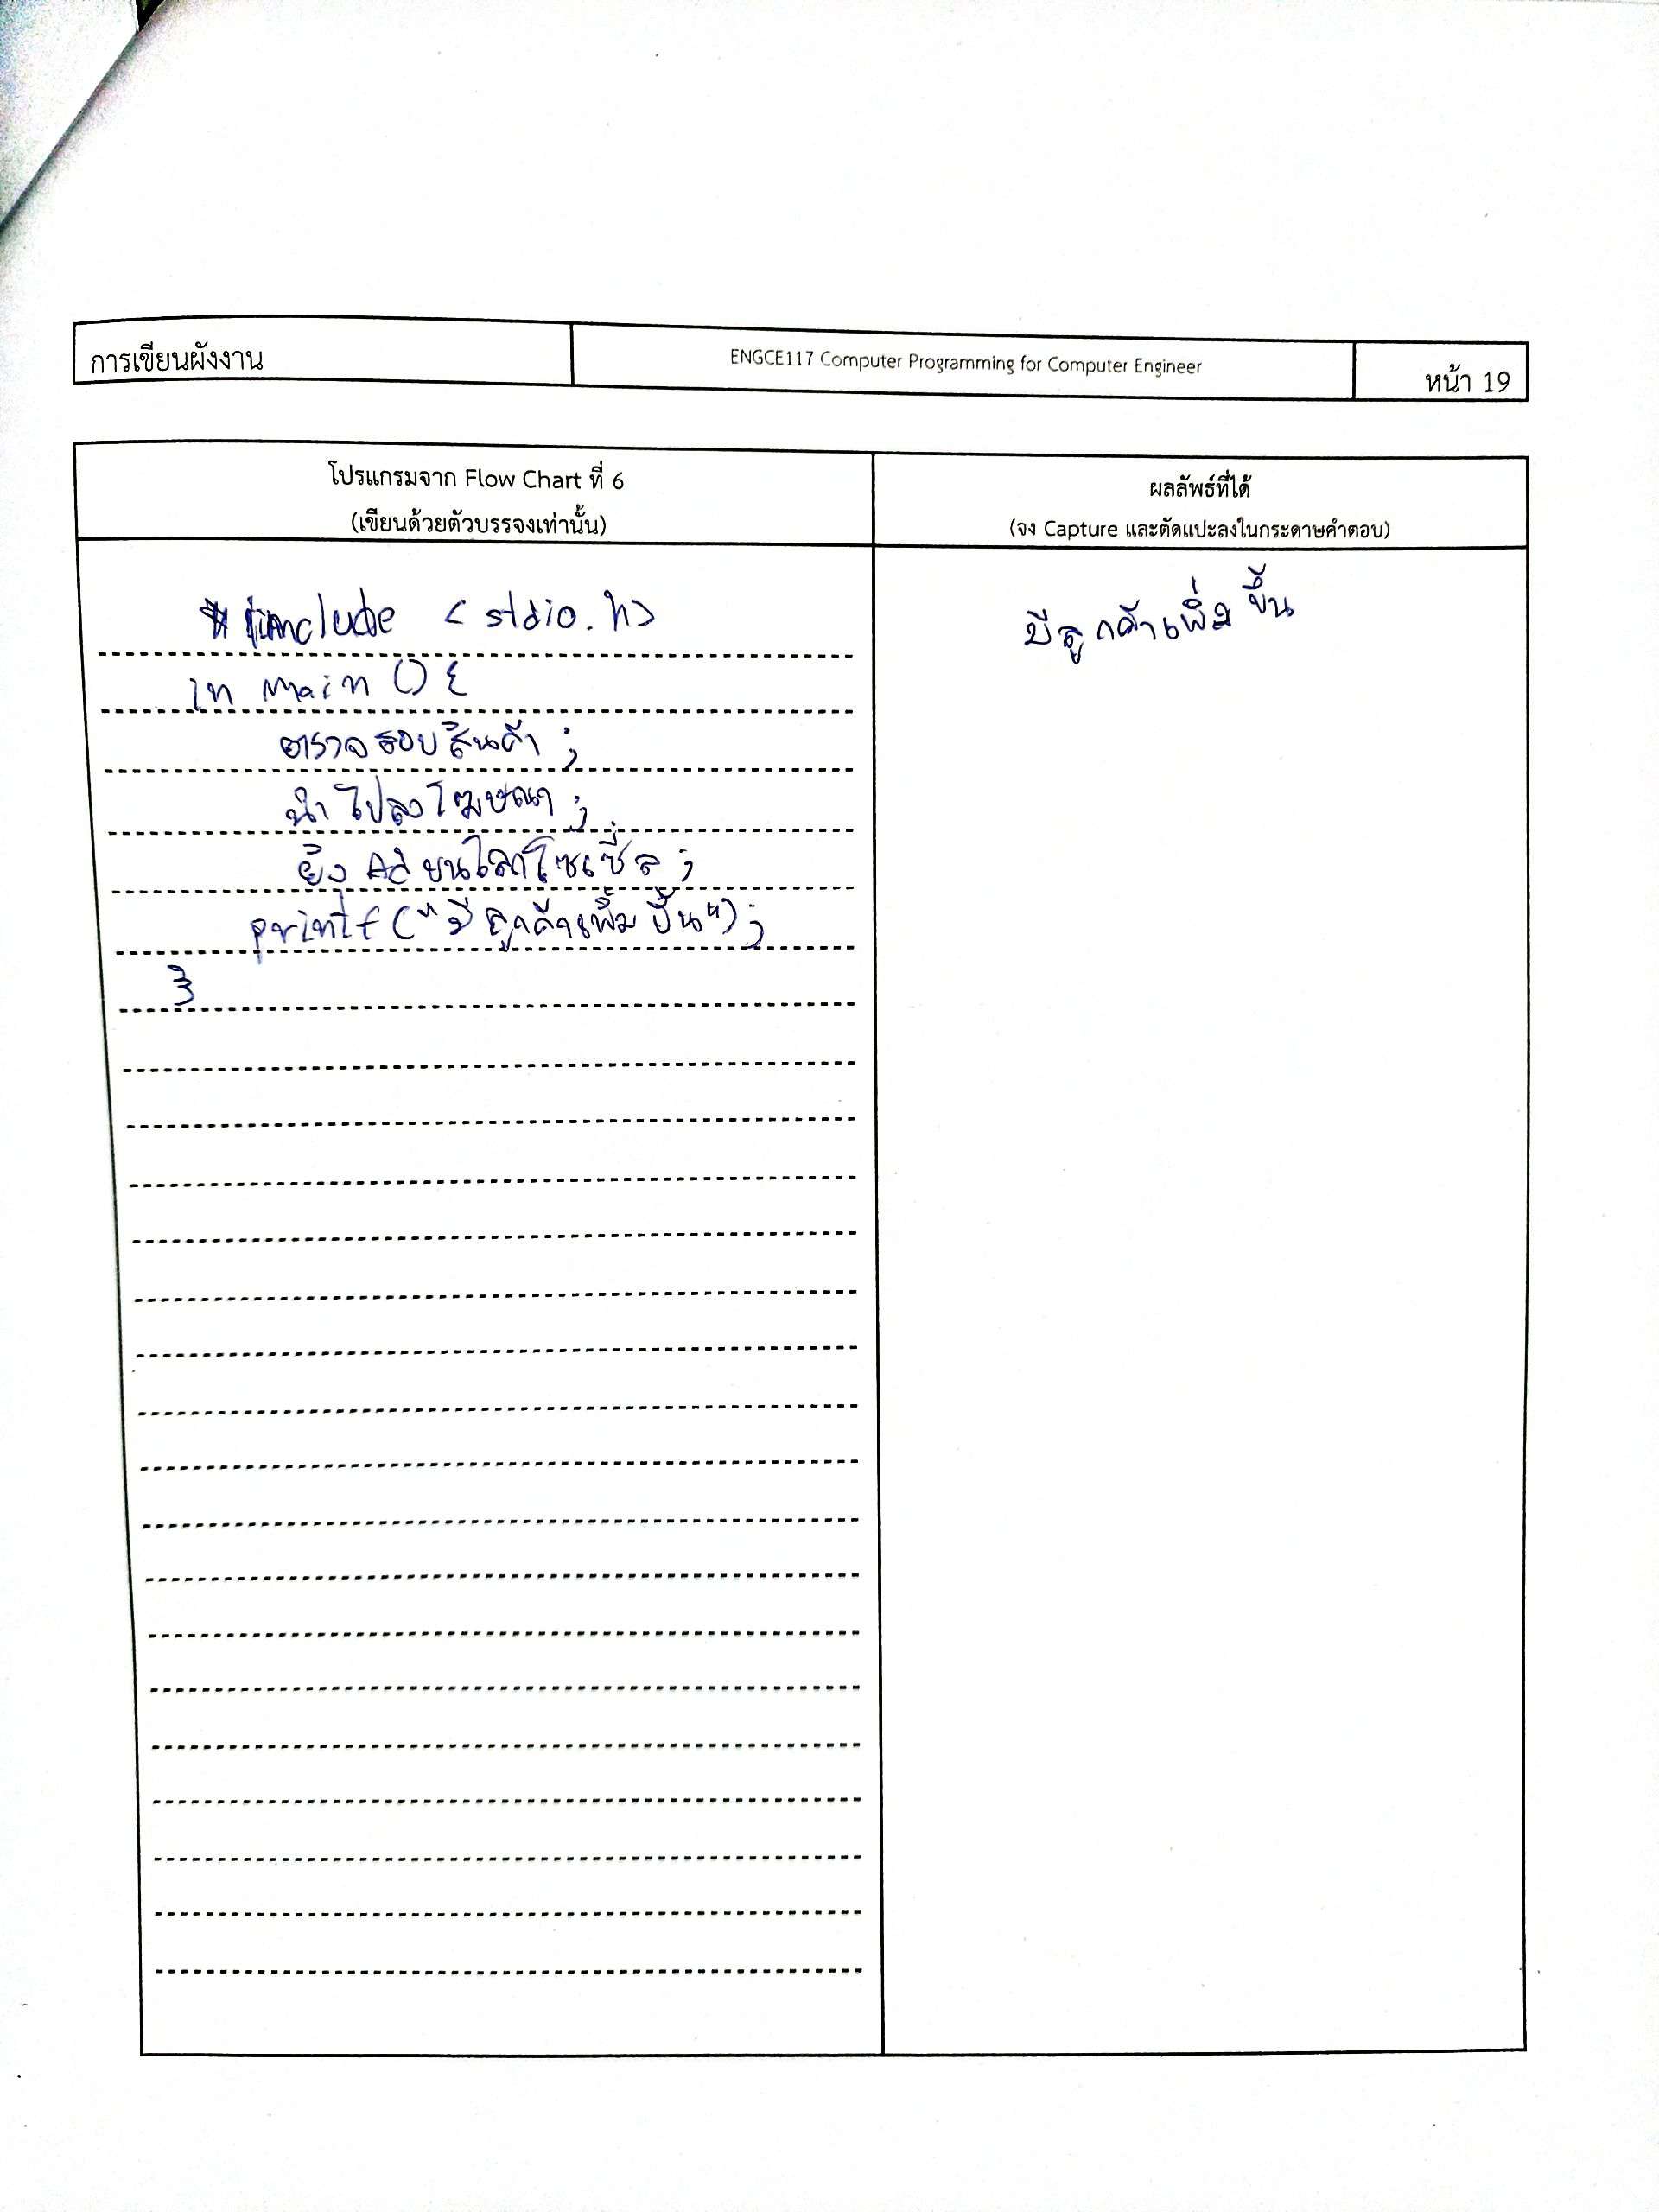 การเขียนผังงาน
ENGCE117 Computer Programming for Computer Engineer
หน้า 19
โปรแกรมจาก Flow Chart ที่ 6
(เขียนด้วยตัวบรรจงเท่านั้น)
ผลลัพธ์ที่ได้
(จง Capture และตัดแปะลงในกระดาษคำตอบ)
#include <stdio.h>
in main () {
ตรวจสอบสินค้า ;
นำไปลงโฆษณา ;
ยิง Ad บนโลกโซเชี่ล ;
printf ("มีลูกค้าเพิ่มขึ้น");
}
มีลูกค้าเพิ่มขึ้น